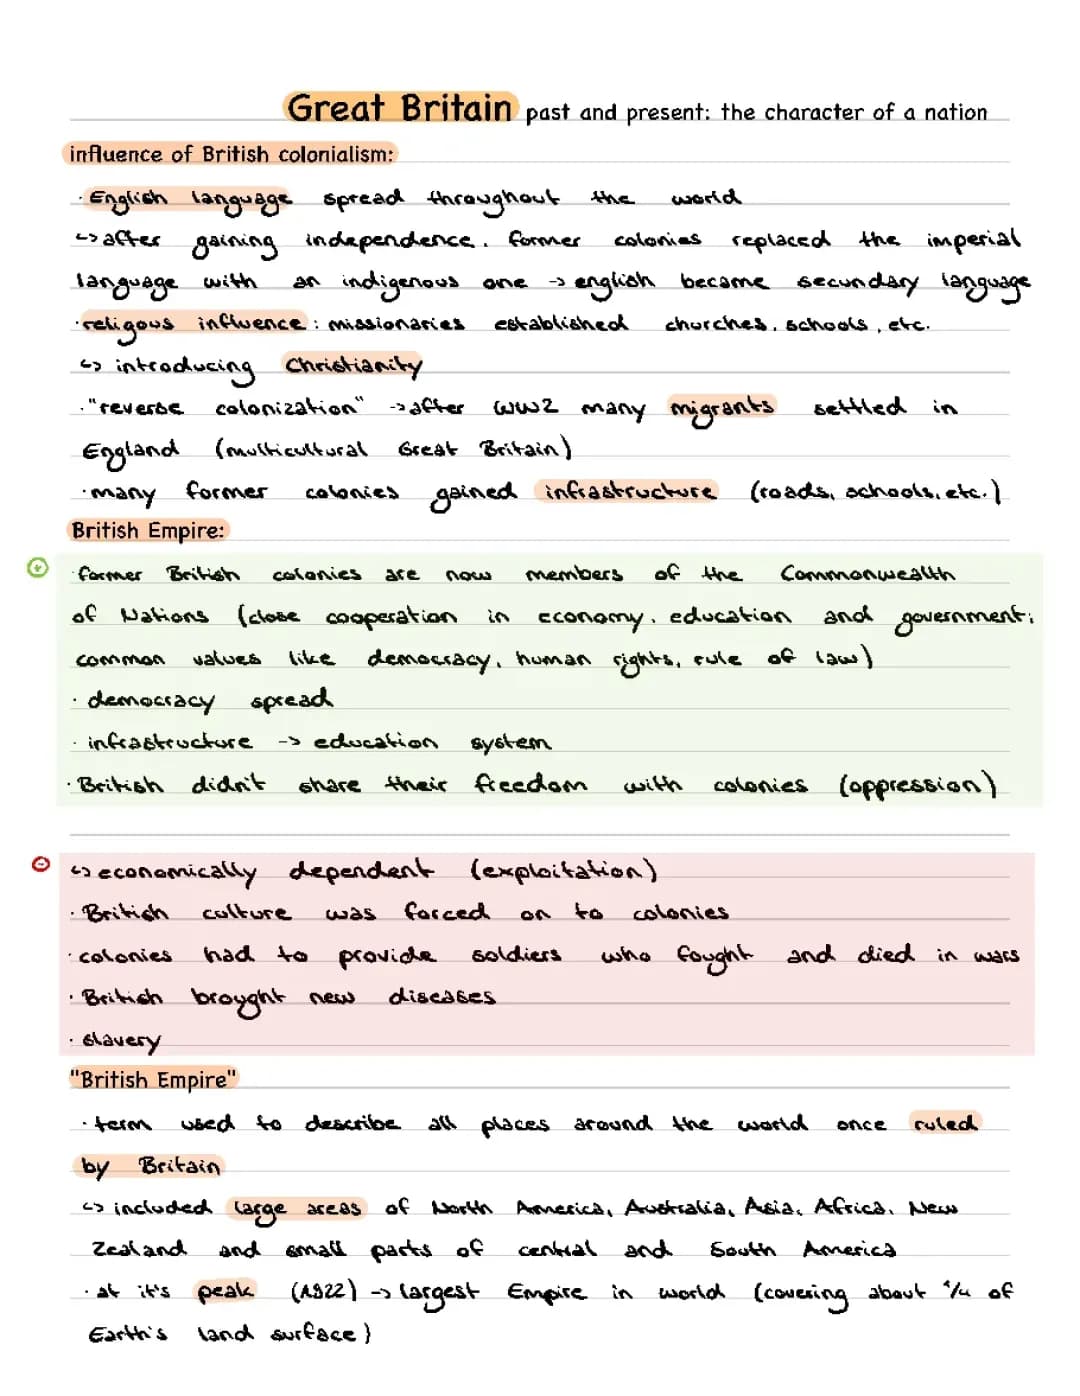 Great Britain past and present: the character of a nation
influence of British colonialism:
· English language spread throughout the world
↳ after gaining independence, former colonies replaced the imperial
language with an indigenous one -> english became secundary language
· religous influence : missionaries established churches, schools, etc.
↳ introducing Christianity
· "reverse colonization" -> after WW2 many migrants settled in
England (multicultural Great Britain)
· many former colonies gained infrastructure (roads, schools, etc.)
British Empire:
+ · former British colonies are now members of the Commonwealth
of Nations (close cooperation in economy, education and government;
common values like democracy, human rights, rule of law)
· democracy spread
· infrastructure -> education system
· British didn't share their freedom with colonies (oppression)
- ↳ economically dependent (exploitation)
· British culture was forced on to colonies
· colonies had to provide soldiers who fought and died in wars
· British brought new diseases
· slavery
"British Empire"
· term used to describe all places around the world once ruled
by Britain
↳ included large areas of North America, Australia, Asia, Africa, New
Zealand and small parts of central and South America
· at it's peak (1922) -> largest Empire in world (covering about 1/4 of
Earth's land surface)